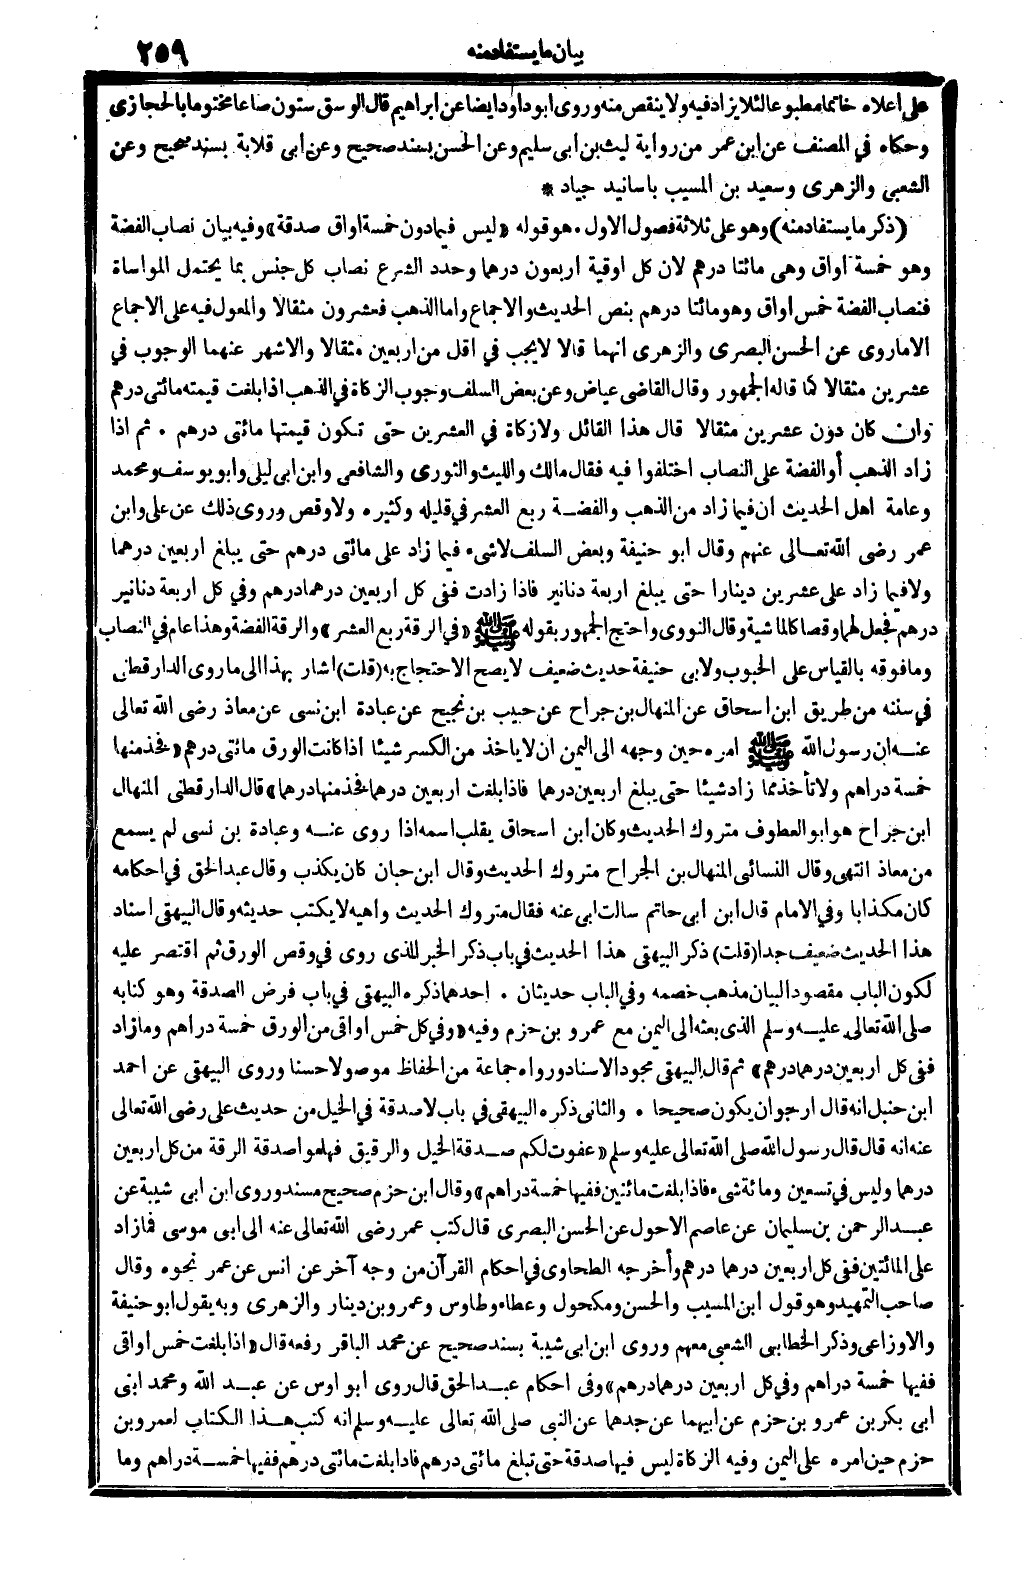 بيان ما يستفاد منه ٢٥٩
على اعلاه خاتما مطبوعا لئلا يزاد فيه ولا ينقص منه وروى ابو داود ايضا عن ابراهيم قال الوسق ستون صاعا مختوما بالحجازى
وحكاه فى المصنف عن ابن عمر من رواية ليث بن ابى سليم وعن الحسن بسند صحيح وعن ابى قلابة بسند صحيح وعن
الشعبى والزهرى وسعيد بن المسيب باسانيد جياد *
(ذكر ما يستفاد منه) وهو على ثلاثة فصول الاول . هو قوله «ليس فيما دون خمسة اواق صدقة» وفيه بيان نصاب الفضة
وهو خمسة اواق وهى مائتا درهم لان كل اوقية اربعون درهما وحدد الشرع نصاب كل جنس بما يحتمل المواساة
فنصاب الفضة خمس اواق وهو مائتا درهم بنص الحديث والاجماع واما الذهب فعشرون مثقالا والمعول فيه على الاجماع
الا ماروى عن الحسن البصرى والزهرى انهما قالا لا يجب فى اقل من اربعين مثقالا والاشهر عنهما الوجوب فى
عشرين مثقالا كما قاله الجمهور وقال القاضى عياض وعن بعض السلف وجوب الزكاة فى الذهب اذا بلغت قيمته مائتى درهم
وان كان دون عشرين مثقالا قال هذا القائل ولا زكاة فى العشرين حتى تكون قيمتها مائتى درهم . ثم اذا
زاد الذهب أو الفضة على النصاب اختلفوا فيه فقال مالك والليث والثورى والشافعى وابن ابى ليلى وابو يوسف ومحمد
وعامة اهل الحديث ان فيما زاد من الذهب والفضة ربع العشر فى قليله وكثيره ولا وقص وروى ذلك عن على وابن
عمر رضى الله تعالى عنهم وقال ابو حنيفة وبعض السلف لا شىء فيما زاد على مائتى درهم حتى يبلغ اربعين درهما
ولا فيما زاد على عشرين دينارا حتى يبلغ اربعة دنانير فاذا زادت ففى كل اربعين درهما درهم وفى كل اربعة دنانير
درهم فجعل لهما وقصا كالماشية وقال النووى واحتج الجمهور بقوله ﷺ «فى الرقة ربع العشر» والرقة الفضة وهذا عام فى النصاب
وما فوقه بالقياس على الحبوب ولابى حنيفة حديث ضعيف لا يصح الاحتجاج به (قلت) اشار بهذا الى ماروى الدارقطنى
فى سننه من طريق ابن اسحاق عن المنهال بن جراح عن حبيب بن نجيح عن عبادة ابن نسى عن معاذ رضى الله تعالى
عنه ان رسول الله ﷺ امره حين وجهه الى اليمن ان لا ياخذ من الكسر شيئا اذا كانت الورق مائتى درهم «فخذ منها
خمسة دراهم ولا تأخذ مما زاد شيئا حتى يبلغ اربعين درهما فاذا بلغت اربعين درهما فخذ منها درهما» قال الدارقطنى المنهال
ابن جراح هو ابو العطوف متروك الحديث وكان ابن اسحاق يقلب اسمه اذا روى عنه وعبادة بن نسى لم يسمع
من معاذ انتهى وقال النسائى المنهال بن الجراح متروك الحديث وقال ابن حبان كان يكذب وقال عبد الحق فى احكامه
كان مكذابا وفى الامام قال ابن ابى حاتم سالت ابى عنه فقال متروك الحديث واهيه لا يكتب حديثه وقال البيهقى اسناد
هذا الحديث ضعيف جدا (قلت) ذكر البيهقى هذا الحديث فى باب ذكر الخبر الذى روى فى وقص الورق ثم اقتصر عليه
لكون الباب مقصودا لبيان مذهب خصمه وفى الباب حديثان . احدهما ذكره البيهقى فى باب فرض الصدقة وهو كتابه
صلى الله تعالى عليه وسلم الذى بعثه الى اليمن مع عمرو بن حزم وفيه «وفى كل خمس اواقى من الورق خمسة دراهم وما زاد
ففى كل اربعين درهما درهم» ثم قال البيهقى مجود الاسناد ورواه جماعة من الحفاظ موصولا حسنا وروى البيهقى عن احمد
ابن حنبل انه قال ارجو ان يكون صحيحا . والثانى ذكره البيهقى فى باب لا صدقة فى الخيل من حديث على رضى الله تعالى
عنه انه قال قال رسول الله صلى الله تعالى عليه وسلم «عفوت لكم صدقة الخيل والرقيق فهلموا صدقة الرقة من كل اربعين
درهما وليس فى تسعين ومائة شىء فاذا بلغت مائتين ففيها خمسة دراهم» وقال ابن حزم صحيح مسند وروى ابن ابى شيبة عن
عبد الرحمن بن سليمان عن عاصم الاحول عن الحسن البصرى قال كتب عمر رضى الله تعالى عنه الى ابى موسى فما زاد
على المائتين ففى كل اربعين درهما درهم وأخرجه الطحاوى فى احكام القرآن من وجه آخر عن انس عن عمر نحوه وقال
صاحب التمهيد وهو قول ابن المسيب والحسن ومكحول وعطاء وطاوس وعمرو بن دينار والزهرى وبه يقول ابو حنيفة
والاوزاعى وذكر الخطابى الشعبى معهم وروى ابن ابى شيبة بسند صحيح عن محمد الباقر رفعه قال «اذا بلغت خمس اواقى
ففيها خمسة دراهم وفى كل اربعين درهما درهم» وفى احكام عبد الحق قال روى ابو اوس عن عبد الله ومحمد ابنى
ابى بكر بن عمرو بن حزم عن ابيهما عن جدهما عن النبى صلى الله تعالى عليه وسلم انه كتب هذا الكتاب لعمرو بن
حزم حين امره على اليمن وفيه الزكاة ليس فيها صدقة حتى تبلغ مائتى درهم فاذا بلغت مائتى درهم ففيها خمسة دراهم وما